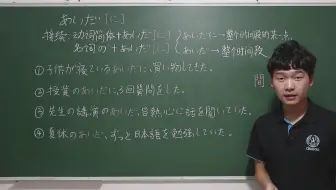 あいだ［に］
接续 动词简体＋あいだ［に］ あいだに→整个时间段的某一点
名词の＋あいだ［に］ あいだ→整个时间段
間
①子供が寝ているあいだに、買い物してきた。
②授業のあいだに、3回質問をした。
③先生の講演のあいだ、皆熱心に話を聞いていた。
④夏休のあいだ、ずっと日本語を勉強していた。